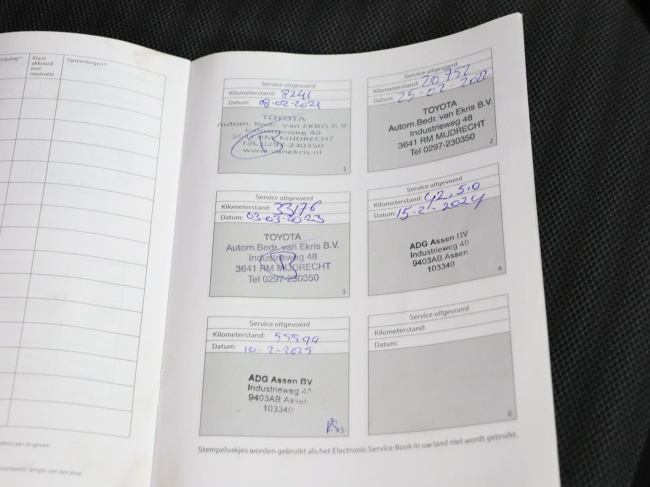 Klant
akkoord
met
reparatie
Opmerkingen**
Service uitgevoerd
Kilometerstand: 8241
Datum: 08-02-2021
TOYOTA
Autom.Bedr. Van EKRIS B.V.
Industrieweg 48
3641 RM MIJDRECHT
Tel. 0297-230350
www.vanekris.nl
1
Service uitgevoerd
Kilometerstand: 20752
Datum: 25-02-2022
TOYOTA
Autom.Bedr. van Ekris B.V.
Industrieweg 48
3641 RM MIJDRECHT
Tel 0297-230350
2
Service uitgevoerd
Kilometerstand: 33176
Datum: 03-03-2023
TOYOTA
Autom.Bedr. van Ekris B.V.
Industrieweg 48
3641 RM MIJDRECHT
Tel 0297-230350
3
Service uitgevoerd
Kilometerstand:
Datum: 15-2-2024
ADG Assen BV
Industrieweg 40
9403AB Assen
103340
4
Service uitgevoerd
Kilometerstand: 55594
Datum: 10-2-2025
ADG Assen BV
Industrieweg
9403AB Assen
103340
5
Service uitgevoerd
Kilometerstand:
Datum:
6
Stempelvakjes worden gebruikt als het Electronic Service Book in uw land niet wordt gebruikt.